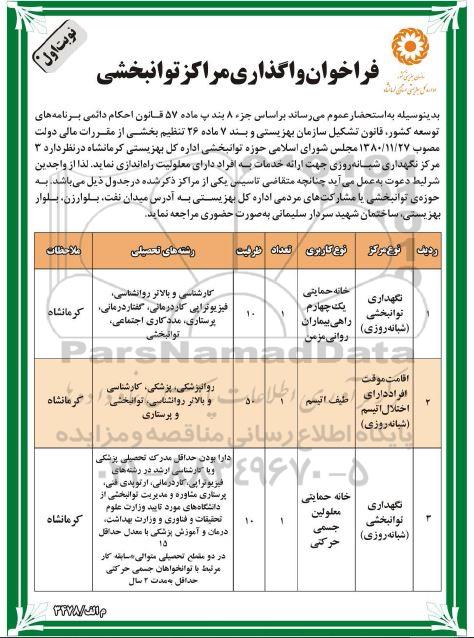 نوبت اول
سازمان بهزیستی کشور
اداره کل بهزیستی استان کرمانشاه
فراخوان واگذاری مراکز توانبخشی
بدینوسیله به استحضار عموم می‌رساند براساس جزء ۸ بند پ ماده ۵۷ قانون احکام دائمی برنامه‌های
توسعه کشور، قانون تشکیل سازمان بهزیستی و بند ۷ ماده ۲۶ تنظیم بخشی از مقررات مالی دولت
مصوب ۱۳۸۰/۱۱/۲۷ مجلس شورای اسلامی حوزه توانبخشی اداره کل بهزیستی کرمانشاه درنظردارد ۳
مرکز نگهداری شبانه‌روزی جهت ارائه خدمات به افراد دارای معلولیت راه‌اندازی نماید. لذا از واجدین
شرایط دعوت به‌عمل می‌آید چنانچه متقاضی تاسیس یکی از مراکز ذکرشده درجدول ذیل می‌باشد. به
حوزه‌ی توانبخشی یا مشارکت‌های مردمی اداره کل بهزیستی به آدرس میدان نفت، بلوارزن، بلوار
بهزیستی، ساختمان شهید سردار سلیمانی به‌صورت حضوری مراجعه نماید.
ردیف نوع مرکز نوع کاربری تعداد ظرفیت رشته‌های تحصیلی ملاحظات
۱
نگهداری
توانبخشی
(شبانه‌روزی)
خانه حمایتی
یک‌چهارم
راهی‌بیماران
روانی‌مزمن
۱
۱۰
کارشناسی و بالاتر روانشناسی،
فیزیوتراپی کاردرمانی، گفتاردرمانی،
پرستاری، مددکاری اجتماعی،
توانبخشی
کرمانشاه
۲
اقامت‌موقت
افراددارای
اختلال‌اتیسم
(شبانه‌روزی)
طیف اتیسم
۱
۵۰
روانپزشکی، پزشکی، کارشناسی
و بالاتر روانشناسی، توانبخشی
و پرستاری
کرمانشاه
۳
نگهداری
توانبخشی
(شبانه‌روزی)
خانه حمایتی
معلولین
جسمی
حرکتی
۱
۱۰
دارا بودن حداقل مدرک تحصیلی پزشکی
ویا کارشناسی ارشد در رشته‌های
فیزیوتراپی،کاردرمانی، ارتوپدی فنی،
پرستاری مشاوره و مدیریت توانبخشی از
دانشگاه‌های مورد تایید وزارت علوم
تحقیقات و فناوری و وزارت بهداشت،
درمان و آموزش پزشکی با معدل حداقل
۱۵
در دو مقطع تحصیلی متوالی*سابقه کار
مرتبط با توانخواهان جسمی حرکتی
حداقل به‌مدت ۲ سال
کرمانشاه
ParsNamadData
پایگاه اطلاع رسانی مناقصه و مزایده
۰۲۱-۸۸۳۴۹۶۷۰-۵
م الف/۳۴۷۸